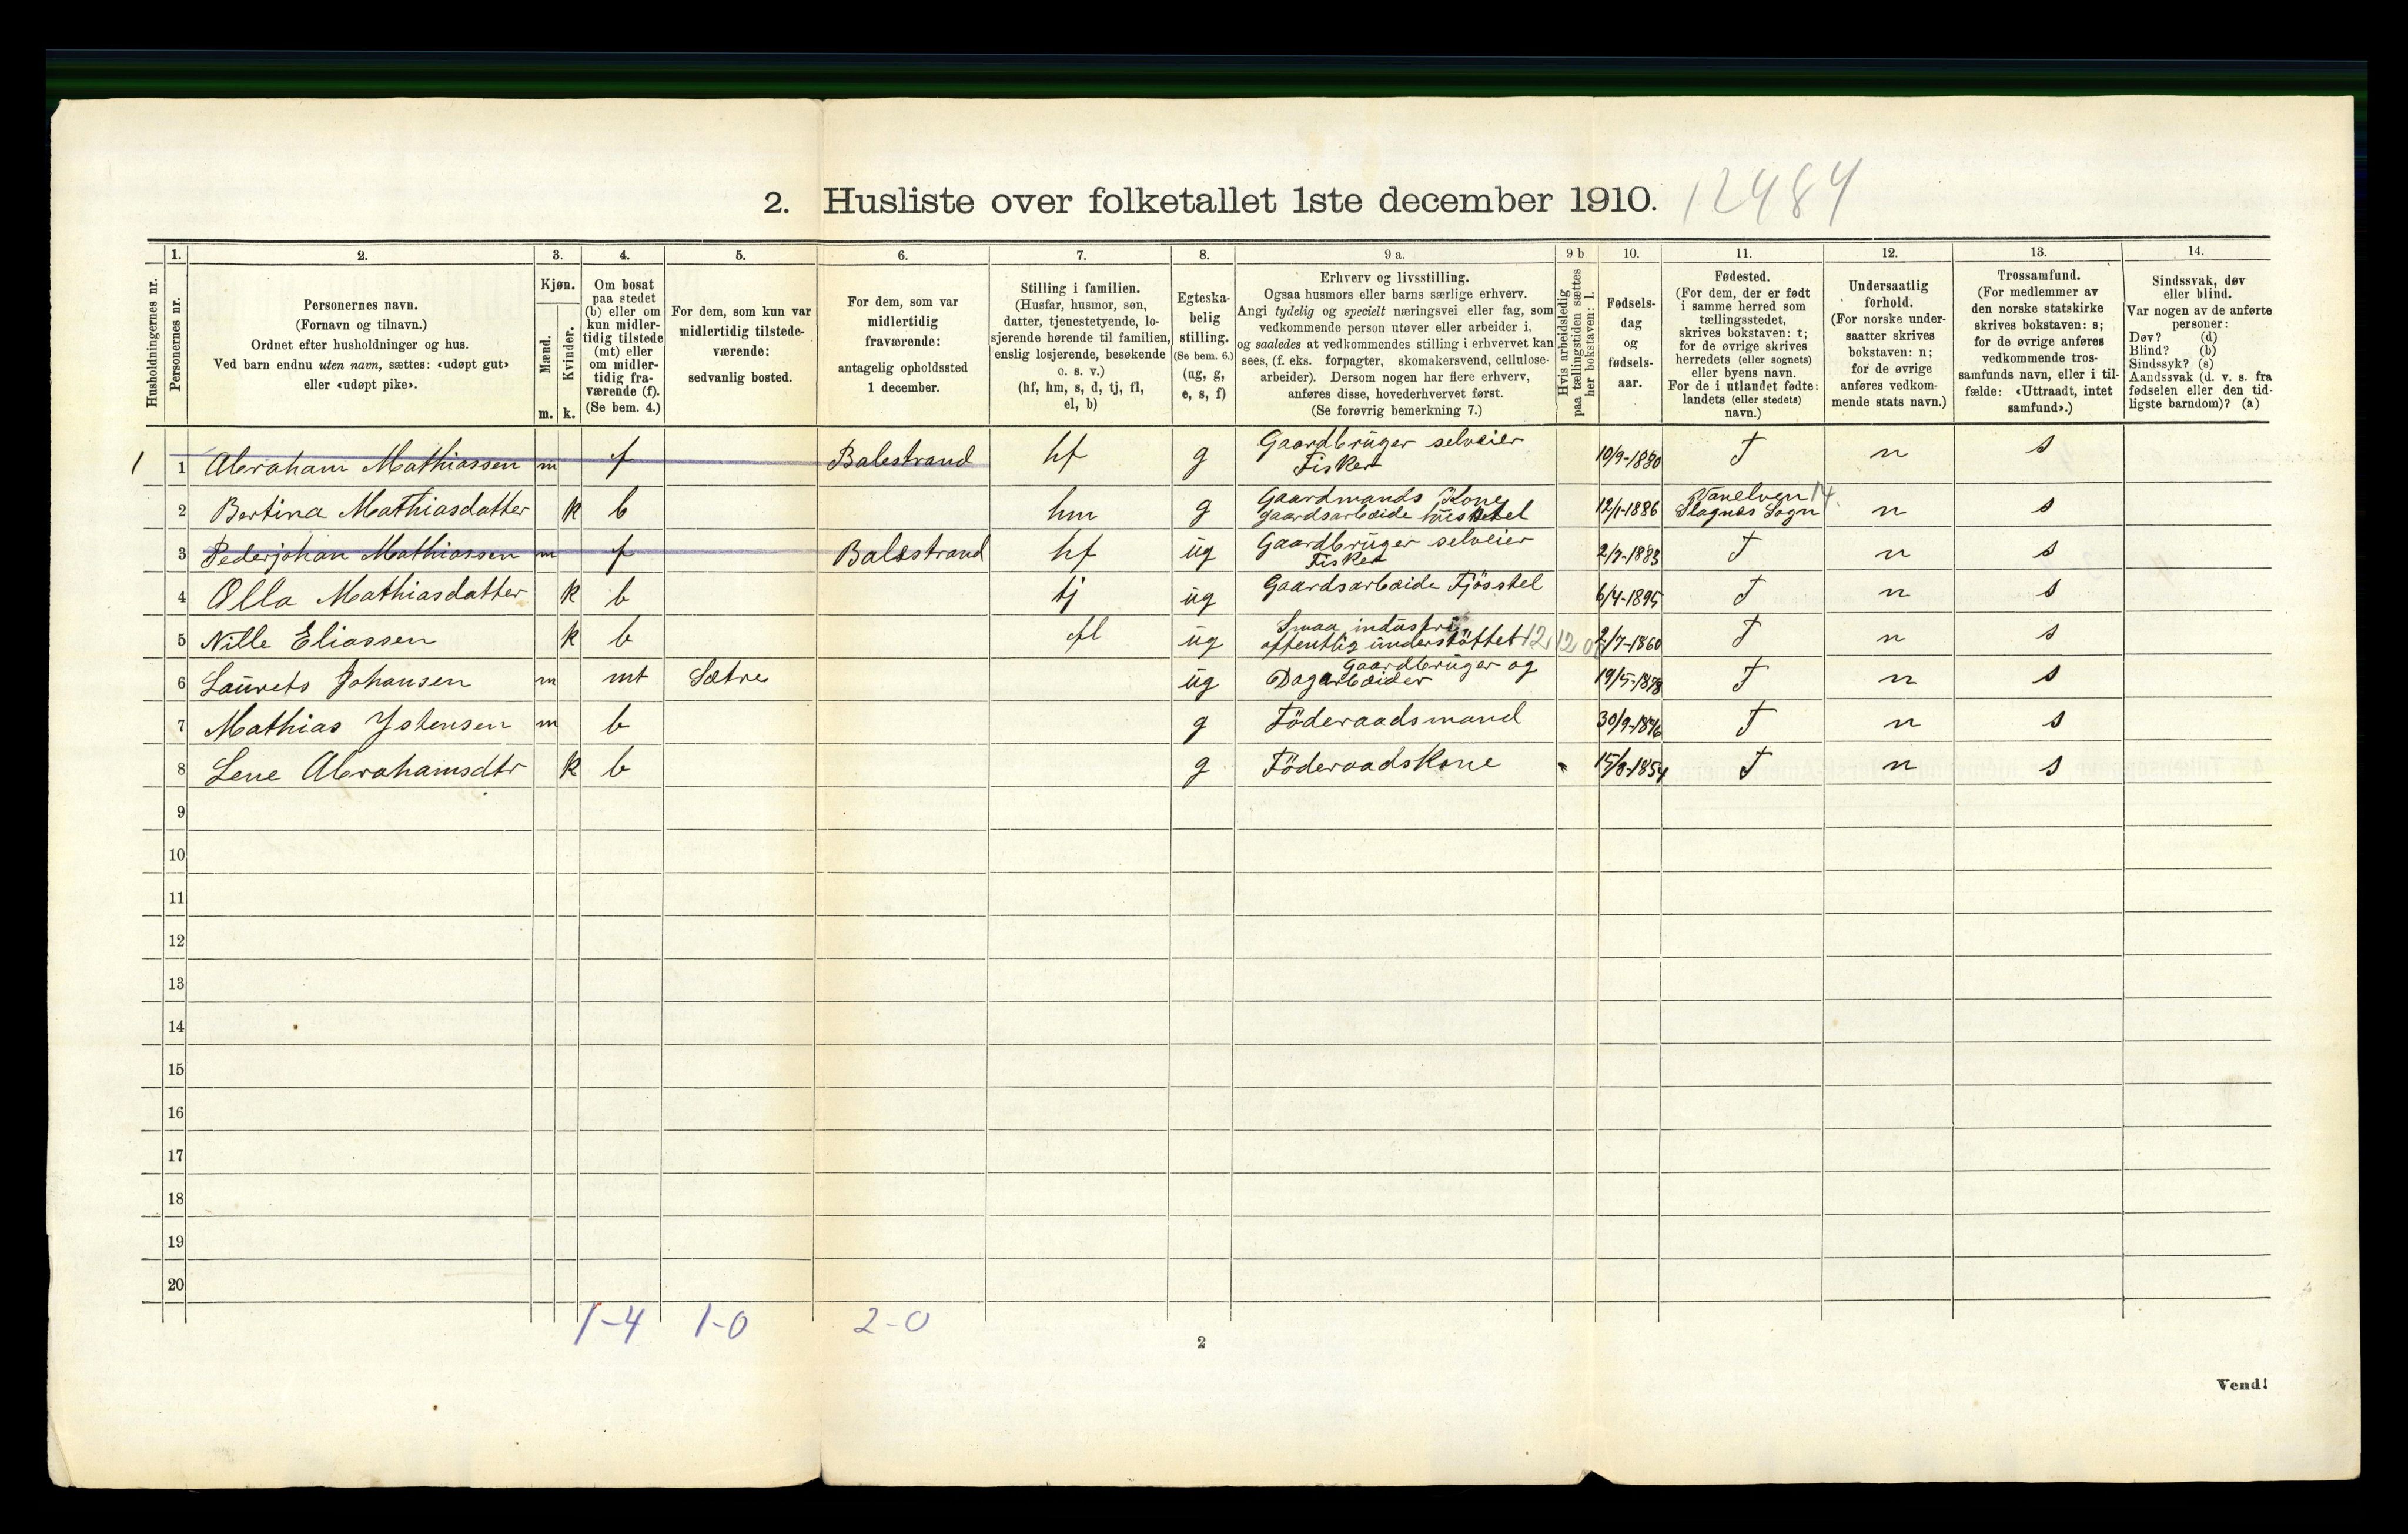 2. Husliste over folketallet 1ste december 1910. 12484
Husholdningernes nr.
1.
Personernes nr.
2.
Personernes navn.
(Fornavn og tilnavn.)
Ordnet efter husholdninger og hus.
Ved barn endnu uten navn, sættes: «udøpt gut»
eller «udøpt pike».
3.
Kjøn.
Mænd.
m.
Kvinder.
k.
4.
Om bosat
paa stedet
(b) eller om
kun midler-
tidig tilstede
(mt) eller
om midler-
tidig fra-
værende (f).
(Se bem. 4.)
5.
For dem, som kun var
midlertidig tilstede-
værende:
sedvanlig bosted.
6.
For dem, som var
midlertidig
fraværende:
antagelig opholdssted
1 december.
7.
Stilling i familien.
(Husfar, husmor, søn,
datter, tjenestetyende, lo-
sjerende hørende til familien,
enslig losjerende, besøkende
o. s. v.)
(hf, hm, s, d, tj, fl,
el, b)
8.
Egteska-
belig
stilling.
(Se bem. 6.)
(ug, g,
e, s, f)
9 a.
Erhverv og livsstilling.
Ogsaa husmors eller barns særlige erhverv.
Angi tydelig og specielt næringsvei eller fag, som
vedkommende person utøver eller arbeider i,
og saaledes at vedkommendes stilling i erhvervet kan
sees, (f. eks. forpagter, skomakersvend, cellulose-
arbeider). Dersom nogen har flere erhverv,
anføres disse, hovederhvervet først.
(Se forøvrig bemerkning 7.)
9 b
Hvis arbeidsledig
paa tællingstiden sættes
her bokstaven: l.
10.
Fødsels-
dag
og
fødsels-
aar.
11.
Fødested.
(For dem, der er født
i samme herred som
tællingsstedet,
skrives bokstaven: t;
for de øvrige skrives
herredets (eller sognets)
eller byens navn.
For de i utlandet fødte:
landets (eller stedets)
navn.)
12.
Undersaatlig
forhold.
(For norske under-
saatter skrives
bokstaven: n;
for de øvrige
anføres vedkom-
mende stats navn.)
13.
Trossamfund.
(For medlemmer av
den norske statskirke
skrives bokstaven: s;
for de øvrige anføres
vedkommende tros-
samfunds navn, eller i til-
fælde: «Uttraadt, intet
samfund».)
14.
Sindssvak, døv
eller blind.
Var nogen av de anførte
personer:
Døv? (d)
Blind? (b)
Sindssyk? (s)
Aandssvak (d. v. s. fra
fødselen eller den tid-
ligste barndom)? (a)
1 1 Abraham Mathiassen m f Balestrand hf g Gaardbruger selveier Fisker 10/9-1880 T n s
2 Bertina Mathiasdatter k b hm g Gaardmands Kone gaardsarbeide husstel 12/1-1886 Vanelven 14 Slagnæs Sogn n s
3 Pederjohan Mathiassen m f Balestrand hf ug Gaardbruger selveier Fisker 2/7-1883 T n s
4 Olla Mathiasdatter k b tj ug Gaardsarbeide Fjösstel 6/4-1895 T n s
5 Nille Eliassen k b fl ug Smaa industri offentlig understöttet 12,12 2/7-1860 T n s
6 Laurets Johansen m mt Sætre ug Gaardbruger og Dagarbeider 19/5-1878 T n s
7 Mathias Ystensen m b g Föderaadsmand 30/9-1846 T n s
8 Lene Abrahamsdtr k b g Föderaadskone 15/8-1854 T n s
9
10
11
12
13
14
15
16
17
18
19
20
1-4 1-0 2-0
2
Vend!